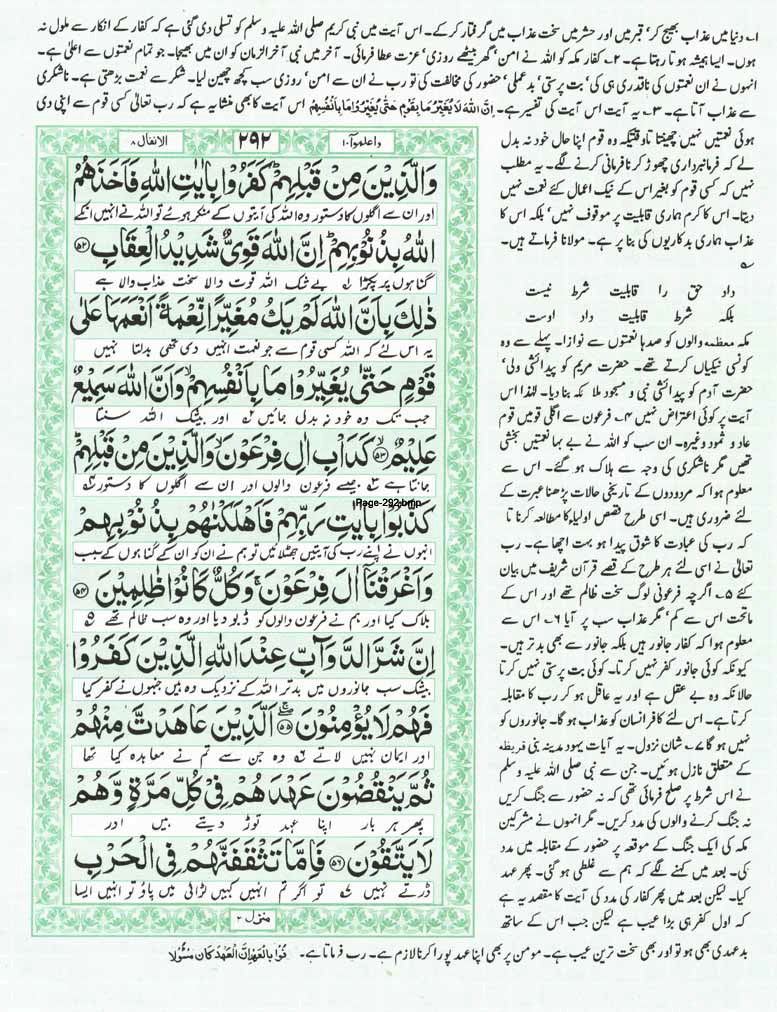 ۱؎ دنیا میں عذاب بھیج کر' قبر میں اور حشر میں سخت عذاب میں گرفتار کر کے۔ اس آیت میں نبی کریم صلی اللہ علیہ وسلم کو تسلی دی گئی ہے کہ کفار کے انکار سے ملول نہ
ہوں۔ ایسا ہمیشہ ہوتا رہتا ہے۔ ۲؎ کفار مکہ کو اللہ نے امن' گھر بیٹھے روزی' عزت عطا فرمائی۔ آخر میں نبی آخر الزمان کو ان میں بھیجا۔ جو تمام نعمتوں سے اعلیٰ ہے۔
انہوں نے ان نعمتوں کی ناقدری ہی کی' بت پرستی' بدعملی' حضور کی مخالفت کی تو رب نے ان سے امن' روزی سب کچھ چھین لیا۔ شکر سے نعمت بڑھتی ہے۔ ناشکری
سے عذاب آتا ہے۔ ۳؎ یہ آیت اس آیت کی تفسیر ہے۔ اِنَّ اللّٰہَ لَا یُغَیِّرُ مَا بِقَوْمٍ حَتّٰی یُغَیِّرُوْا مَا بِاَنْفُسِہِمْ اس آیت کا بھی منشا یہ ہے کہ رب تعالیٰ کسی قوم سے اپنی دی
ہوئی نعمتیں نہیں چھینتا تاوقتیکہ وہ قوم اپنا حال خود نہ بدل
لے کہ فرمانبرداری چھوڑ کر نافرمانی کرنے لگے۔ یہ مطلب
نہیں کہ کسی قوم کو بغیر اس کے نیک اعمال کئے نعمت نہیں
دیتا۔ اس کا کرم ہماری قابلیت پر موقوف نہیں' بلکہ اس کا
عذاب ہماری بدکاریوں کی بنا پر ہے۔ مولانا فرماتے ہیں۔
داد حق را قابلیت شرط نیست
بلکہ شرط قابلیت داد اوست
مکہ معظمہ والوں کو صدہا نعمتوں سے نوازا۔ پہلے سے وہ
کونسی نیکیاں کرتے تھے۔ حضرت مریم کو پیدائشی ولی'
حضرت آدم کو پیدائشی نبی و مسجود ملائکہ بنا دیا۔ لہٰذا اس
آیت پر کوئی اعتراض نہیں ۴؎ فرعون سے اگلی قومیں قوم
عاد و ثمود وغیرہ۔ ان سب کو اللہ نے بے بہا نعمتیں بخشی
تھیں مگر ناشکری کی وجہ سے ہلاک ہو گئے۔ اس سے
معلوم ہوا کہ مردودوں کے تاریخی حالات پڑھنا عبرت کے
لئے ضروری ہیں۔ اسی طرح قصص اولیاء کا مطالعہ کرنا تا
کہ رب کی عبادت کا شوق پیدا ہو بہت اچھا ہے۔ رب
تعالیٰ نے اسی لئے ہر طرح کے قصے قرآن شریف میں بیان
کئے ۵؎ اگرچہ فرعونی لوگ سخت ظالم تھے اور اس کے
ماتحت اس سے کم' مگر عذاب سب پر آیا ۶؎ اس سے
معلوم ہوا کہ کفار جانور ہیں بلکہ جانور سے بھی بدتر ہیں۔
کیونکہ کوئی جانور کفر نہیں کرتا۔ کوئی بت پرستی نہیں کرتا
حالانکہ وہ بے عقل ہے اور یہ عاقل ہو کر رب کا مقابلہ
کرتا ہے۔ اس لئے کافر انسان کو عذاب ہو گا۔ جانوروں کو
نہیں ہو گا ۷؎ شان نزول۔ یہ آیات یہود مدینہ بنی قریظہ
کے متعلق نازل ہوئیں۔ جن سے نبی صلی اللہ علیہ وسلم
نے اس شرط پر صلح فرمائی تھی کہ نہ حضور سے جنگ کریں
نہ جنگ کرنے والوں کی مدد کریں۔ مگر انہوں نے مشرکین
مکہ کی ایک جنگ کے موقعہ پر حضور کے مقابلہ میں مدد
کی۔ بعد میں کہنے لگے کہ ہم سے غلطی ہو گئی۔ پھر عہد
کیا۔ لیکن بعد میں پھر کفار کی مدد کی آیت کا مقصد یہ ہے
کہ اول کفر ہی بڑا عیب ہے لیکن جب اس کے ساتھ
بدعہدی بھی ہو تو اور بھی سخت ترین عیب ہے۔ مومن پر بھی اپنا عہد پورا کرنا لازم ہے۔ رب فرماتا ہے۔ فُوْا بِالْعَہْدِ اِنَّ الْعَہْدَ کَانَ مَسْئُوْلًا
واعلموا ۱۰ ۲۹۲ الانفال ۸
وَالَّذِیْنَ مِنْ قَبْلِہِمْ کَفَرُوْا بِاٰیٰتِ اللّٰہِ فَاَخَذَہُمُ
اور ان سے اگلوں کا دستور وہ اللہ کی آیتوں کے منکر ہوئے تو اللہ نے انہیں انکے
اللّٰہُ بِذُنُوْبِہِمْ اِنَّ اللّٰہَ قَوِیٌّ شَدِیْدُ الْعِقَابِ ۵۲
گناہوں پر پکڑا ۱؎ بے شک اللہ قوت والا سخت عذاب والا ہے
ذٰلِکَ بِاَنَّ اللّٰہَ لَمْ یَکُ مُغَیِّرًا نِّعْمَۃً اَنْعَمَہَا عَلٰی
یہ اس لئے کہ اللہ کسی قوم سے جو نعمت انہیں دی تھی بدلتا نہیں
قَوْمٍ حَتّٰی یُغَیِّرُوْا مَا بِاَنْفُسِہِمْ وَاَنَّ اللّٰہَ سَمِیْعٌ
جب تک وہ خود نہ بدل جائیں ۲؎ اور بیشک اللہ سنتا
عَلِیْمٌ ۵۳ کَدَاْبِ اٰلِ فِرْعَوْنَ وَالَّذِیْنَ مِنْ قَبْلِہِمْ
جانتا ہے ۳؎ جیسے فرعون والوں اور ان سے اگلوں کا دستور ۴؎
Page-292.bmp
کَذَّبُوْا بِاٰیٰتِ رَبِّہِمْ فَاَہْلَکْنٰہُمْ بِذُنُوْبِہِمْ
انہوں نے اپنے رب کی آیتیں جھٹلائیں تو ہم نے ان کو ان کے گناہوں کے سبب
وَاَغْرَقْنَا اٰلَ فِرْعَوْنَ وَکُلٌّ کَانُوْا ظٰلِمِیْنَ ۵۴
ہلاک کیا اور ہم نے فرعون والوں کو ڈبو دیا اور وہ سب ظالم تھے ۵؎
اِنَّ شَرَّ الدَّوَآبِّ عِنْدَ اللّٰہِ الَّذِیْنَ کَفَرُوْا
بیشک سب جانوروں میں بدتر اللہ کے نزدیک وہ ہیں جنہوں نے کفر کیا
فَہُمْ لَا یُؤْمِنُوْنَ ۵۵ اَلَّذِیْنَ عَاہَدْتَّ مِنْہُمْ
اور ایمان نہیں لاتے ۶؎ وہ جن سے تم نے معاہدہ کیا تھا
ثُمَّ یَنْقُضُوْنَ عَہْدَہُمْ فِیْ کُلِّ مَرَّۃٍ وَّہُمْ
پھر ہر بار اپنا عہد توڑ دیتے ہیں اور
لَا یَتَّقُوْنَ ۵۶ فَاِمَّا تَثْقَفَنَّہُمْ فِی الْحَرْبِ
ڈرتے نہیں ۷؎ تو اگر تم انہیں کہیں لڑائی میں پاؤ تو انہیں ایسا
منزل ۲